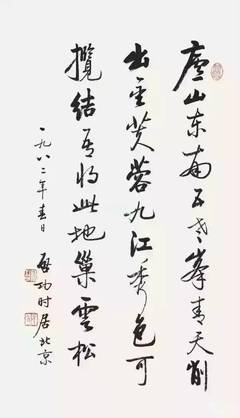 庐山东南五老峯青天削
出金芙蓉九江秀色可
揽结吾将此地巢云松
一九八二年春日
启功时居北京